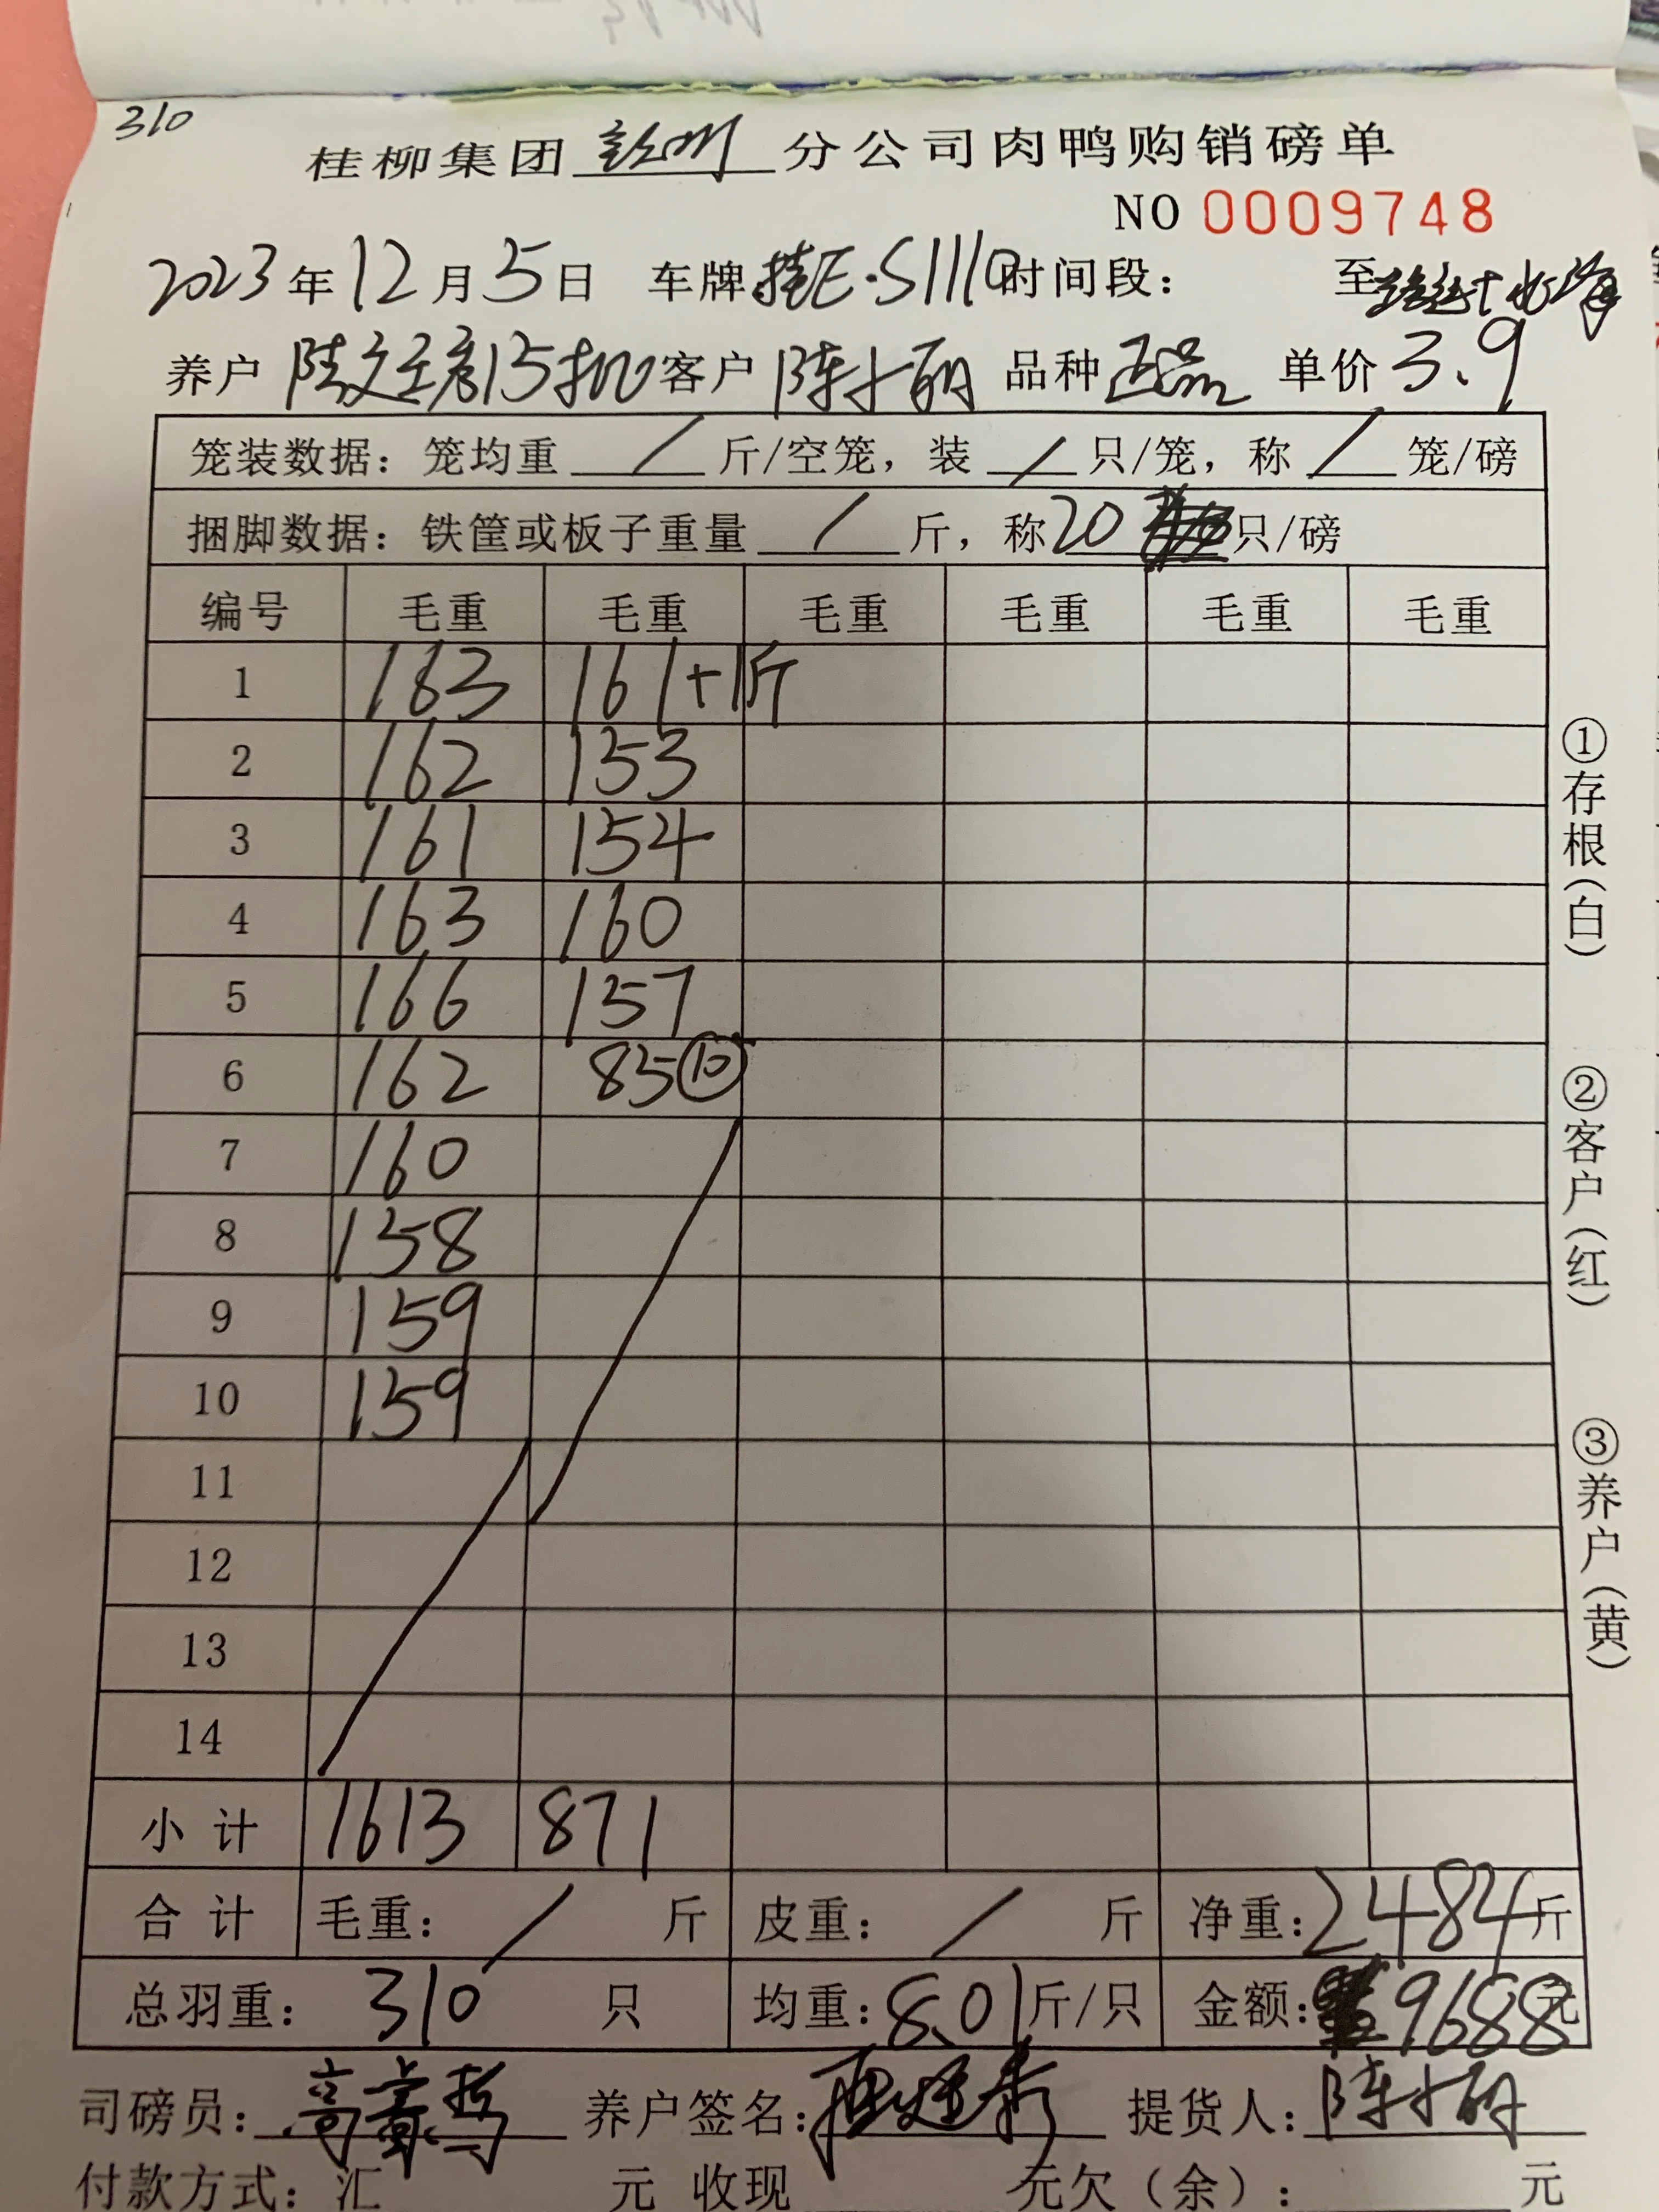 310
桂柳集团 分公司肉鸭购销磅单
NO 0009748
2023年12月5日 车牌桂E·S1110时间段： 至
养户 15批 客户 陈小丽 品种 正品 单价3.9
笼装数据：笼均重 / 斤/空笼，装 / 只/笼，称 / 笼/磅
捆脚数据：铁筐或板子重量 / 斤，称20 只/磅
编号 毛重 毛重 毛重 毛重 毛重 毛重
1 163 161+1斤
2 162 153
3 161 154
4 163 160
5 166 157
6 162 85⑩
7 160
8 158
9 159
10 159
11
12
13
14
小计 1613 871
合计 毛重： / 斤 皮重： / 斤 净重：2484斤
总羽重： 310 只 均重：8.01斤/只 金额：9688元
司磅员： 养户签名： 提货人：陈小丽
付款方式：汇 元 收现 元欠（余）： 元
①存根（白）
②客户（红）
③养户（黄）